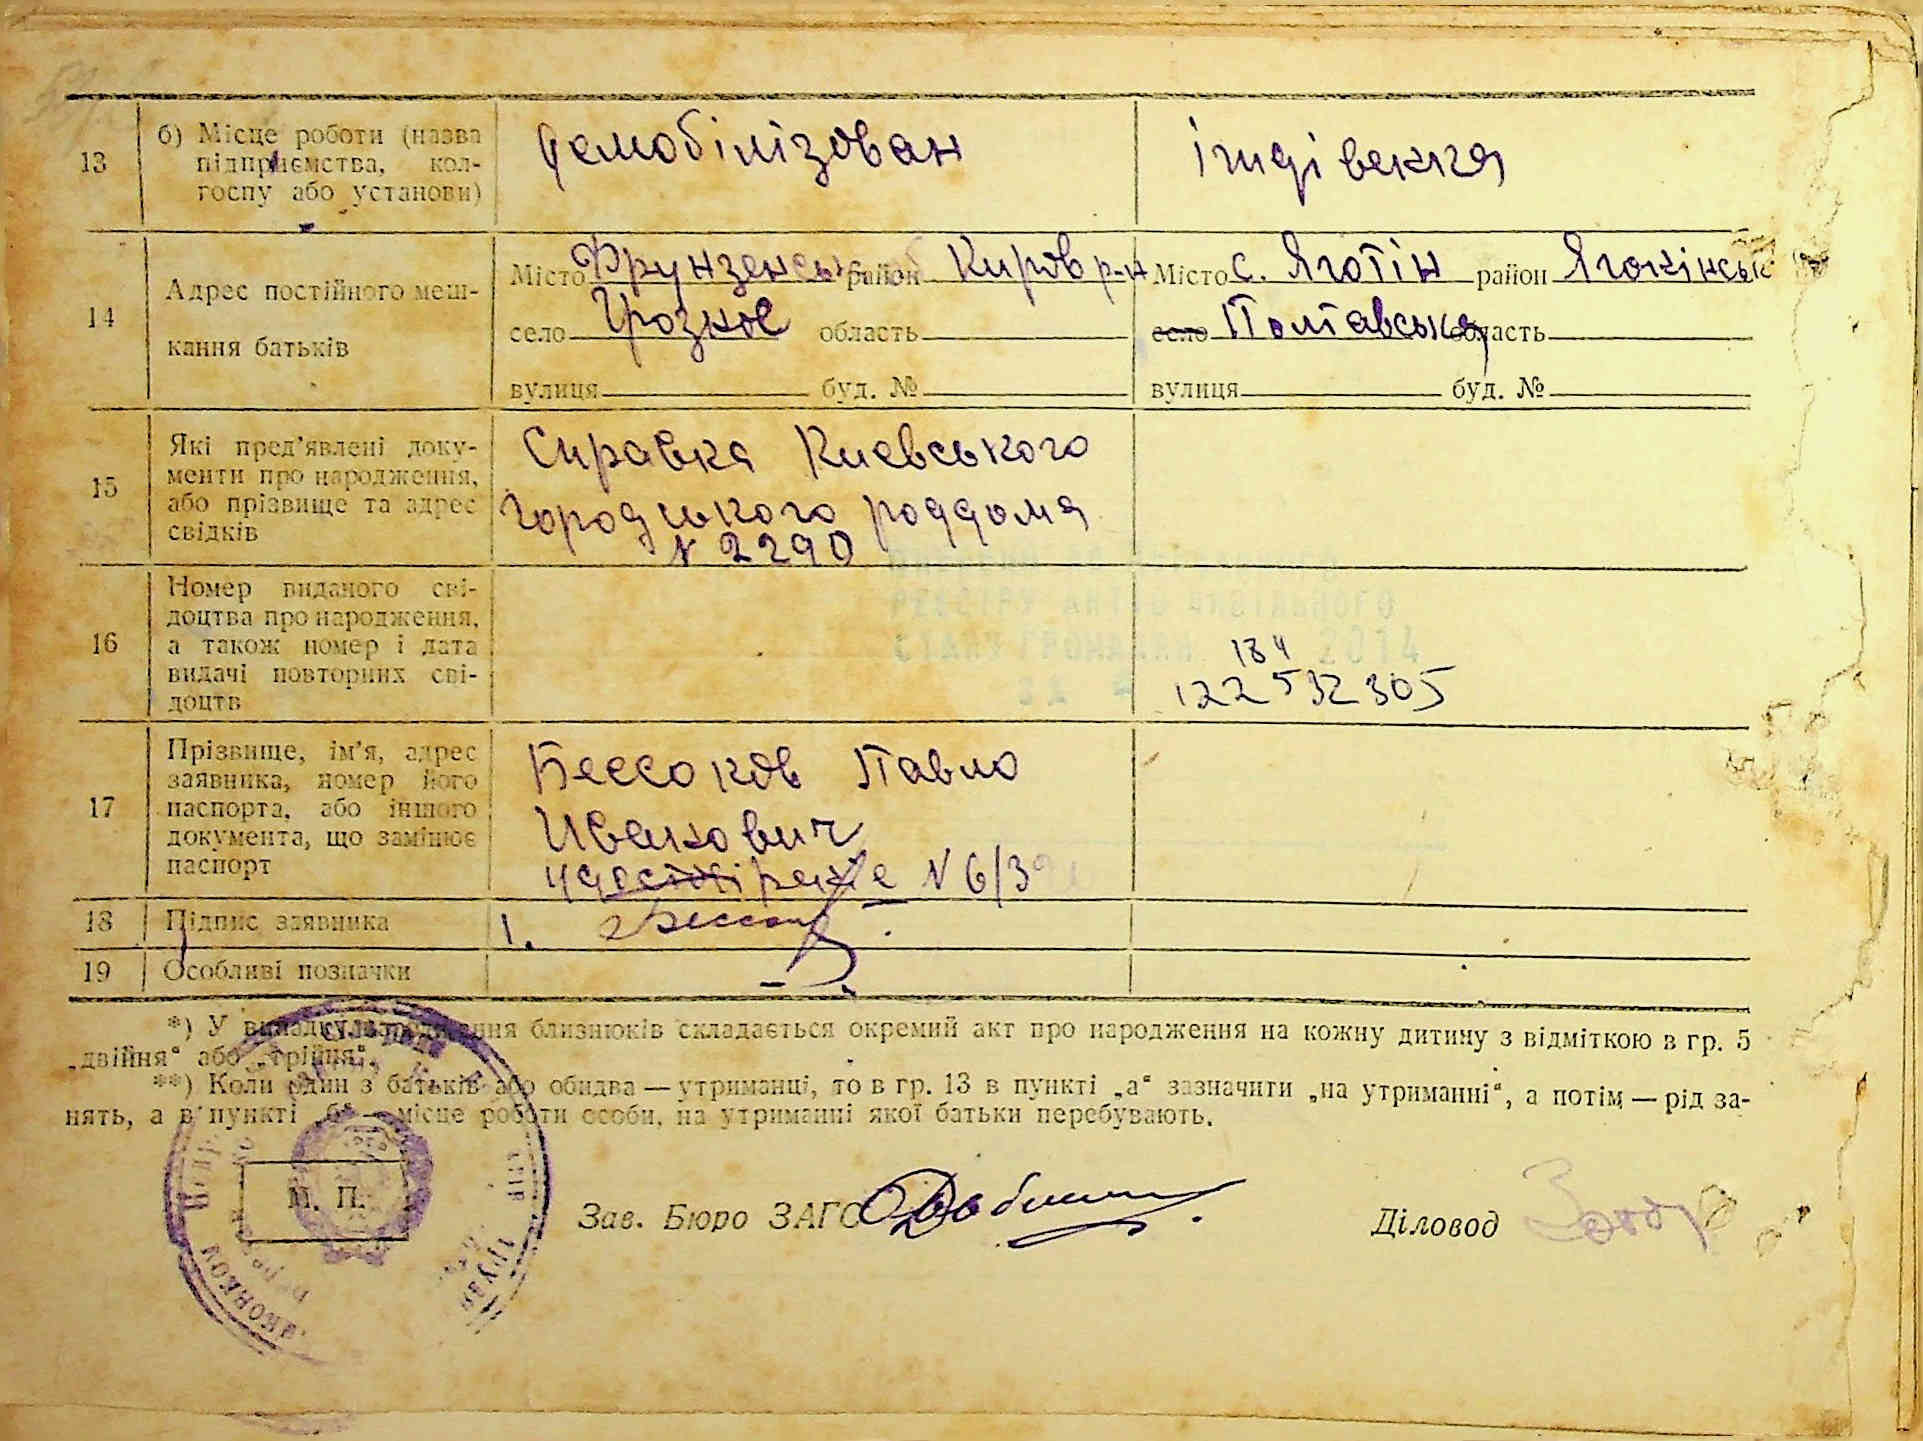 13
б) Місце роботи (назва
підприємства, кол-
госпу або установи)
демобілізован
іждівенка
14
Адрес постійного меш-
кання батьків
Місто Фрунзенськ район Киров р-н
село Грозное область
вулиця буд. №
Місто с. Яготін район Яготінськ
село Полтавська область
вулиця буд. №
15
Які пред'явлені доку-
менти про народження,
або прізвище та адрес
свідків
Справка Киевського
Городського роддома
N 2290
16
Номер виданого сві-
доцтва про народження,
а також номер і дата
видачі повторних сві-
доцтв
РЕЄСТРУ АКТІВ ЦИВІЛЬНОГО
СТАНУ ГРОМАДЯН 2014
184
122532305
17
Прізвище, ім'я, адрес
заявника, номер його
паспорта, або іншого
документа, що замінює
паспорт
Бессоков Павло
Иванович
N 6/39
18
Підпис заявника
1.
19
Особливі позначки
*) У випадку народження близнюків складається окремий акт про народження на кожну дитину з відміткою в гр. 5
„двійня“ або „трійня“.
**) Коли один з батьків або обидва — утриманці, то в гр. 13 в пункті „а“ зазначити „на утриманні“, а потім — рід за-
нять, а в пункті „б“ — місце роботи особи, на утриманні якої батьки перебувають.
М. П.
Зав. Бюро ЗАГС
Діловод